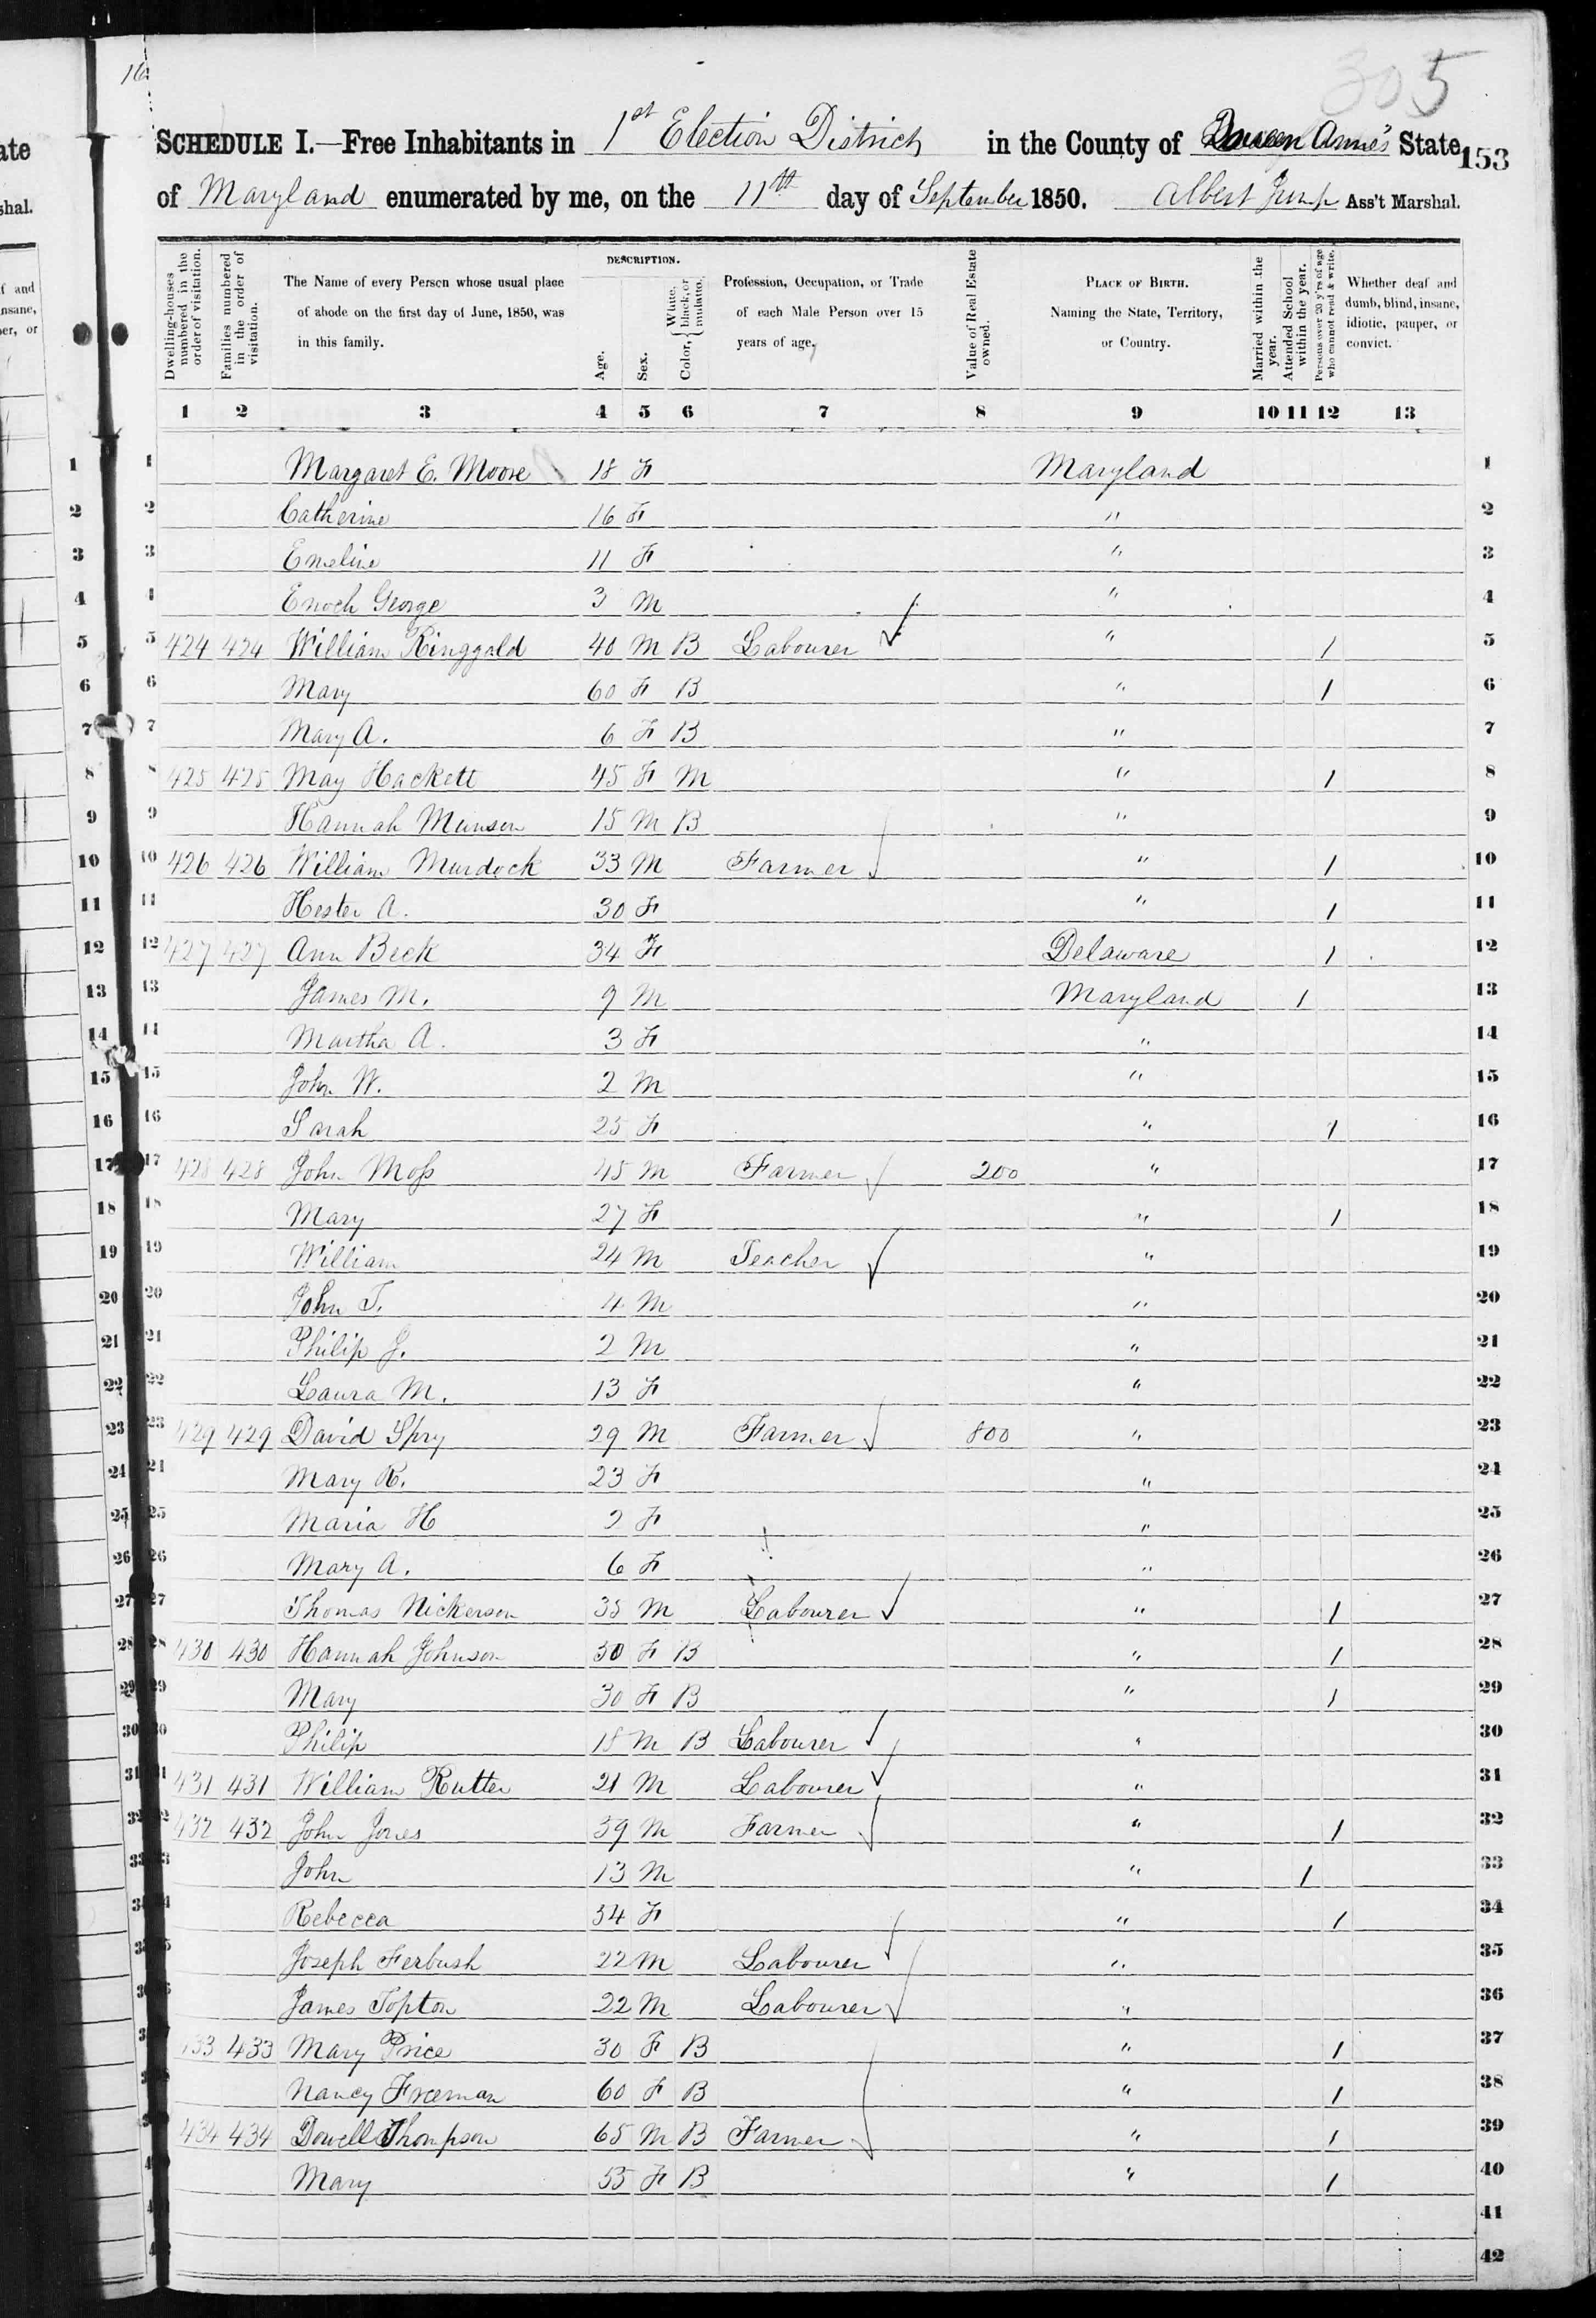 16
305
SCHEDULE I.—Free Inhabitants in 1st Election District in the County of Queen Anne's State 153
of Maryland enumerated by me, on the 11th day of September 1850. Albert Jump Ass't Marshal.
Dwelling-houses numbered in the order of visitation.
Families numbered in the order of visitation.
The Name of every Person whose usual place of abode on the first day of June, 1850, was in this family.
DESCRIPTION.
Age.
Sex.
Color, White, black, or mulatto.
Profession, Occupation, or Trade of each Male Person over 15 years of age.
Value of Real Estate owned.
PLACE OF BIRTH. Naming the State, Territory, or Country.
Married within the year.
Attended School within the year.
Persons over 20 y'rs of age who cannot read & write.
Whether deaf and dumb, blind, insane, idiotic, pauper, or convict.
1 2 3 4 5 6 7 8 9 10 11 12 13
1 Margaret E. Moore 18 F Maryland 1
2 Catherine 16 F " 2
3 Emeline 11 F " 3
4 Enoch George 3 M " 4
5 424 424 William Ringgold 40 M B Labourer " 1 5
6 Mary 60 F B " 1 6
7 Mary A. 6 F B " 7
8 425 425 May Hackett 45 F M " 1 8
9 Hannah Munson 15 M B " 9
10 426 426 William Murdock 33 M Farmer " 1 10
11 Hester A. 30 F " 1 11
12 427 427 Ann Beck 34 F Delaware 1 12
13 James M. 9 M Maryland 1 13
14 Martha A. 3 F " 14
15 John W. 2 M " 15
16 Sarah 25 F " 1 16
17 428 428 John Moss 45 M Farmer 200 " 17
18 Mary 27 F " 1 18
19 William 24 M Teacher " 19
20 John T. 4 M " 20
21 Philip J. 2 M " 21
22 Laura M. 13 F " 22
23 429 429 David Spry 29 M Farmer 800 " 23
24 Mary R. 23 F " 24
25 Maria H 2 F " 25
26 Mary A. 6 F " 26
27 Thomas Nickerson 35 M Labourer " 1 27
28 430 430 Hannah Johnson 50 F B " 1 28
29 Mary 30 F B " 1 29
30 Philip 18 M B Labourer " 30
31 431 431 William Rutter 21 M Labourer " 31
32 432 432 John Jones 39 M Farmer " 1 32
33 John 13 M " 1 33
34 Rebecca 34 F " 1 34
35 Joseph Ferbush 22 M Labourer " 35
36 James Topton 22 M Labourer " 36
37 433 433 Mary Price 30 F B " 1 37
38 Nancy Freeman 60 F B " 1 38
39 434 434 Dowell Thompson 65 M B Farmer " 1 39
40 Mary 55 F B " 1 40
41
42